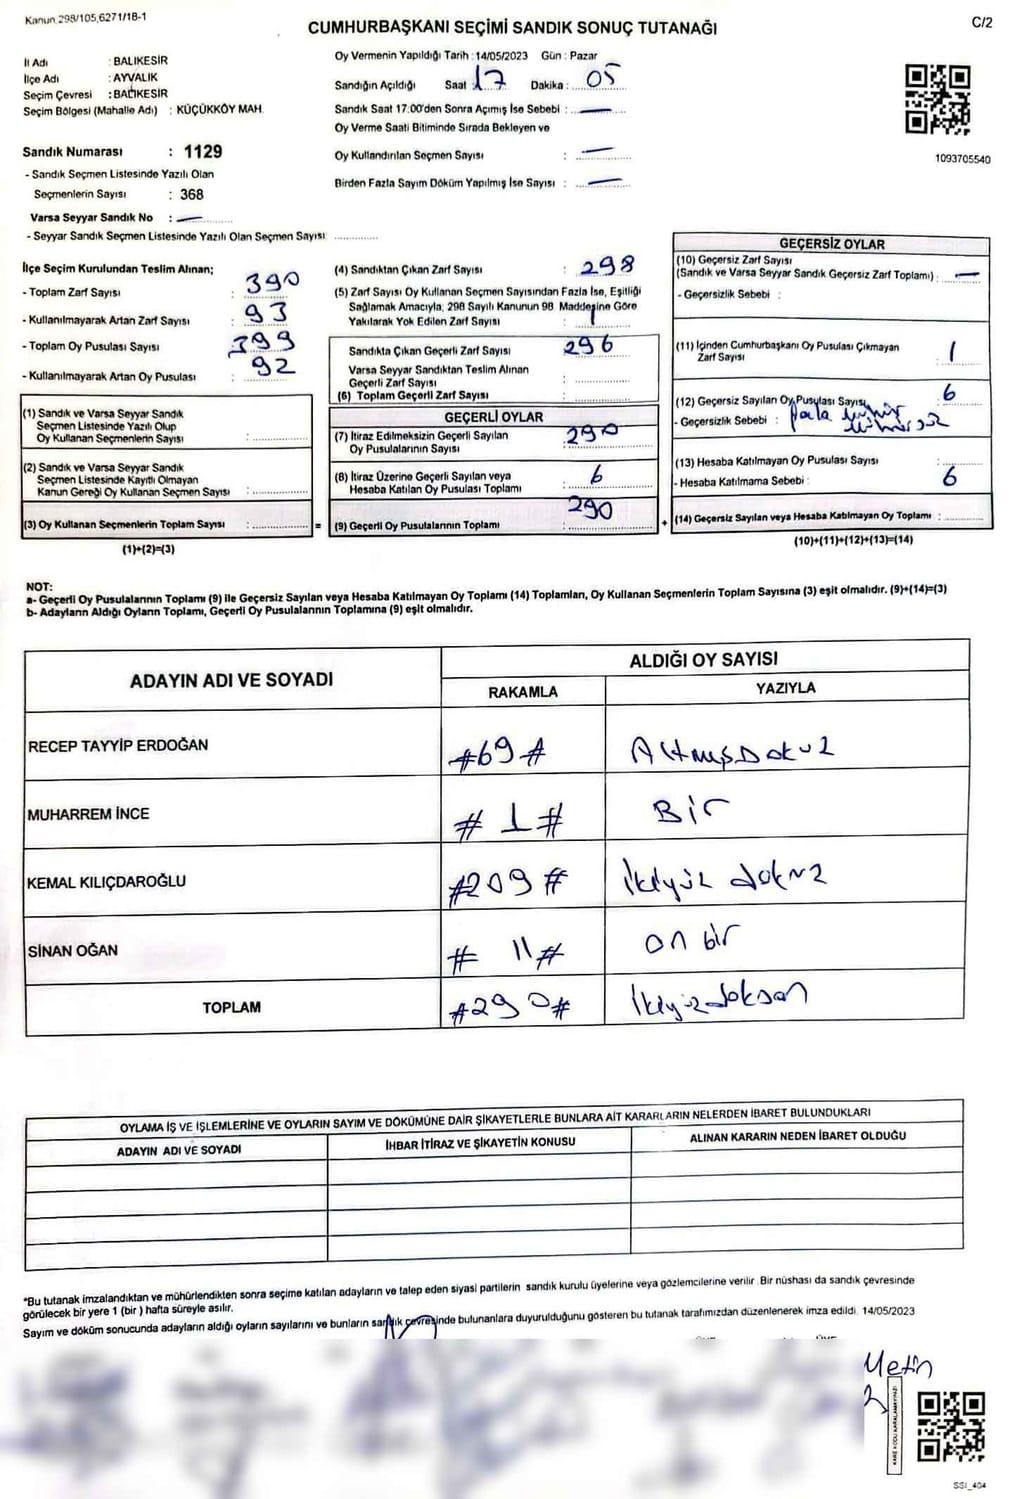 Kanun 298/105,6271/18-1
CUMHURBAŞKANI SEÇİMİ SANDIK SONUÇ TUTANAĞI
C/2
İl Adı : BALIKESİR
İlçe Adı : AYVALIK
Seçim Çevresi : BALIKESİR
Seçim Bölgesi (Mahalle Adı) : KÜÇÜKKÖY MAH.
Oy Vermenin Yapıldığı Tarih : 14/05/2023 Gün : Pazar
Sandığın Açıldığı Saat : 17 Dakika : 05
Sandık Saat 17:00'den Sonra Açımış İse Sebebi : —
Oy Verme Saati Bitiminde Sırada Bekleyen ve
Oy Kullandırılan Seçmen Sayısı : —
Birden Fazla Sayım Döküm Yapılmış İse Sayısı : —
1093705540
Sandık Numarası : 1129
- Sandık Seçmen Listesinde Yazılı Olan
Seçmenlerin Sayısı : 368
Varsa Seyyar Sandık No : —
- Seyyar Sandık Seçmen Listesinde Yazılı Olan Seçmen Sayısı: ............
İlçe Seçim Kurulundan Teslim Alınan;
- Toplam Zarf Sayısı : 390
- Kullanılmayarak Artan Zarf Sayısı : 93
- Toplam Oy Pusulası Sayısı : 399
- Kullanılmayarak Artan Oy Pusulası : 92
(1) Sandık ve Varsa Seyyar Sandık
Seçmen Listesinde Yazılı Olup
Oy Kullanan Seçmenlerin Sayısı :
(2) Sandık ve Varsa Seyyar Sandık
Seçmen Listesinde Kayıtlı Olmayan
Kanun Gereği Oy Kullanan Seçmen Sayısı :
(3) Oy Kullanan Seçmenlerin Toplam Sayısı : =
(1)+(2)=(3)
(4) Sandıktan Çıkan Zarf Sayısı : 298
(5) Zarf Sayısı Oy Kullanan Seçmen Sayısından Fazla İse, Eşitliği
Sağlamak Amacıyla, 298 Sayılı Kanunun 98. Maddesine Göre
Yakılarak Yok Edilen Zarf Sayısı : 1
Sandıkta Çıkan Geçerli Zarf Sayısı : 296
Varsa Seyyar Sandıktan Teslim Alınan
Geçerli Zarf Sayısı :
(6) Toplam Geçerli Zarf Sayısı :
GEÇERLİ OYLAR
(7) İtiraz Edilmeksizin Geçerli Sayılan
Oy Pusulalarının Sayısı : 290
(8) İtiraz Üzerine Geçerli Sayılan veya
Hesaba Katılan Oy Pusulası Toplamı : 6
(9) Geçerli Oy Pusulalarının Toplamı : 290 +
GEÇERSİZ OYLAR
(10) Geçersiz Zarf Sayısı
(Sandık ve Varsa Seyyar Sandık Geçersiz Zarf Toplamı) : —
- Geçersizlik Sebebi :
(11) İçinden Cumhurbaşkanı Oy Pusulası Çıkmayan
Zarf Sayısı : 1
(12) Geçersiz Sayılan Oy Pusulası Sayısı : 6
- Geçersizlik Sebebi :
(13) Hesaba Katılmayan Oy Pusulası Sayısı :
- Hesaba Katılmama Sebebi : 6
(14) Geçersiz Sayılan veya Hesaba Katılmayan Oy Toplamı :
(10)+(11)+(12)+(13)=(14)
NOT:
a- Geçerli Oy Pusulalarının Toplamı (9) ile Geçersiz Sayılan veya Hesaba Katılmayan Oy Toplamı (14) Toplamları, Oy Kullanan Seçmenlerin Toplam Sayısına (3) eşit olmalıdır. (9)+(14)=(3)
b- Adayların Aldığı Oyların Toplamı, Geçerli Oy Pusulalarının Toplamına (9) eşit olmalıdır.
ADAYIN ADI VE SOYADI
ALDIĞI OY SAYISI
RAKAMLA YAZIYLA
RECEP TAYYİP ERDOĞAN #69# AltmışDokuz
MUHARREM İNCE # 1 # Bir
KEMAL KILIÇDAROĞLU #209# İkiyüz dokuz
SİNAN OĞAN # 11# on bir
TOPLAM #290# İkiyüzdoksan
OYLAMA İŞ VE İŞLEMLERİNE VE OYLARIN SAYIM VE DÖKÜMÜNE DAİR ŞİKAYETLERLE BUNLARA AİT KARARLARIN NELERDEN İBARET BULUNDUKLARI
ADAYIN ADI VE SOYADI İHBAR İTİRAZ VE ŞİKAYETİN KONUSU ALINAN KARARIN NEDEN İBARET OLDUĞU
*Bu tutanak imzalandıktan ve mühürlendikten sonra seçime katılan adayların ve talep eden siyasi partilerin sandık kurulu üyelerine veya gözlemcilerine verilir. Bir nüshası da sandık çevresinde
görülecek bir yere 1 (bir) hafta süreyle asılır.
Sayım ve döküm sonucunda adayların aldığı oyların sayılarını ve bunların sandık çevresinde bulunanlara duyurulduğunu gösteren bu tutanak tarafımızdan düzenlenerek imza edildi. 14/05/2023
Metin
KARE KODU KARALAMAYINIZ!
SSI_404